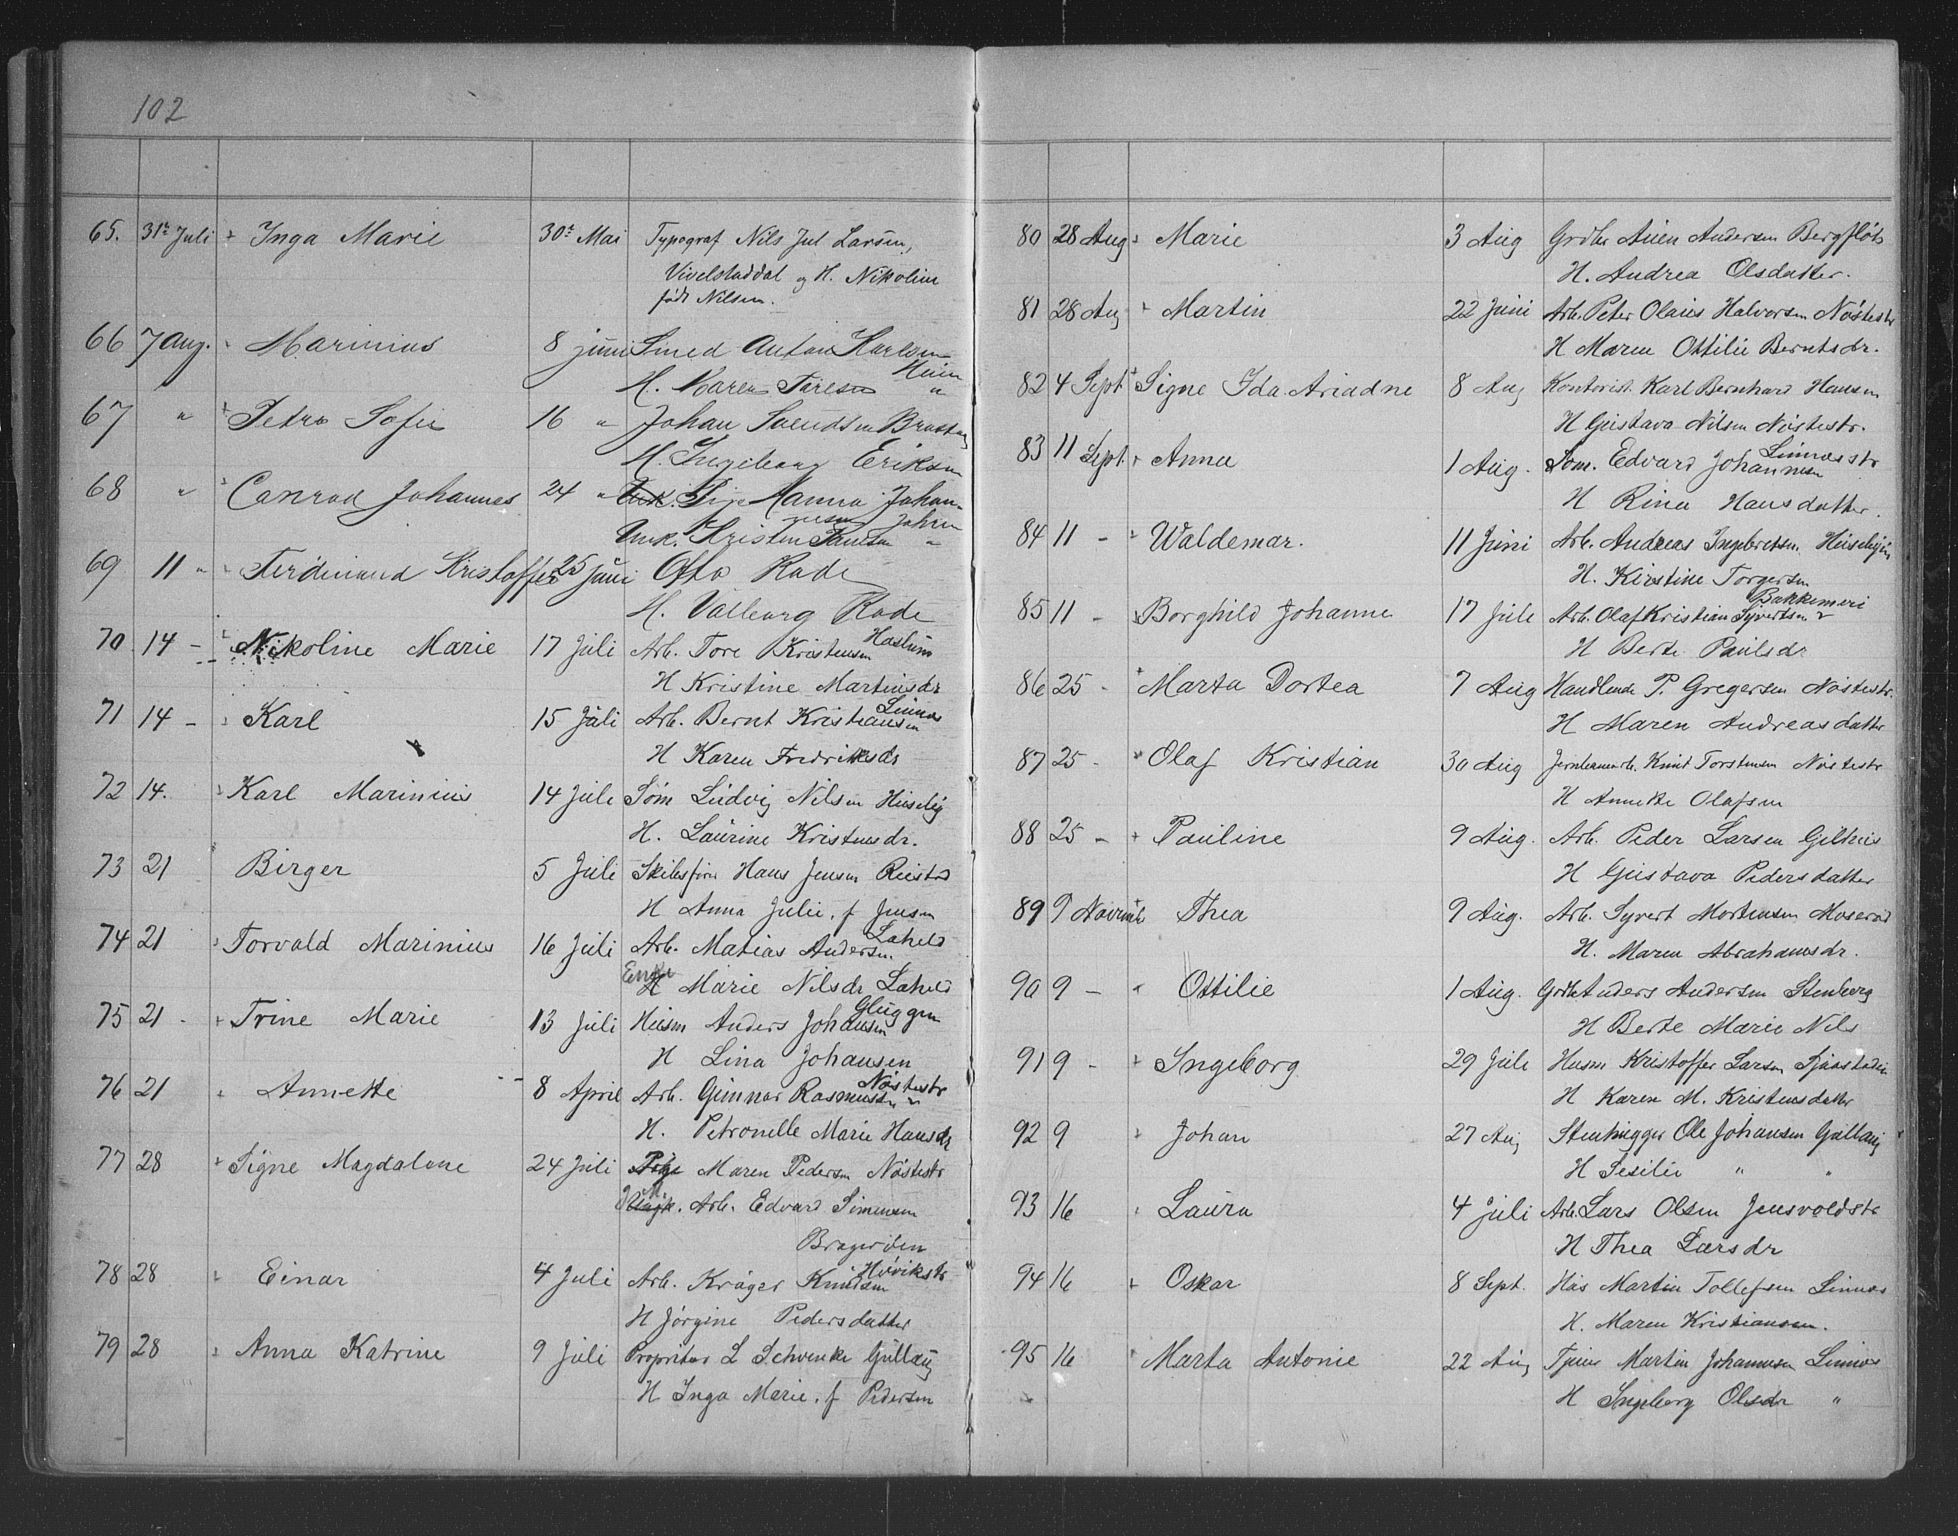 102
65. 31te Juli Inga Marie 30te Mai Typograf Nils Jul Larsen,
Vivelstaddal og H. Nikoline
født Nilsen.
66 7 Aug. Marinius 8 juni Smed Anton Karlsen
H. Maren Toresen "
67 " Petra Sofie 16 " Johan Svendsen
H. Ingeborg Eriksen
68 " Conrad Johannes 24 " Pige Hanna Johan-
nesen
Unk. Kristen Paulsen "
69 11 " Ferdinand Kristoffer 25 juni Otto Rode
H. Valborg Rode
70 14 - Nikoline Marie 17 Juli Arb. Tore Kristensen Haslum
H Kristine Martinsdr
71 14 - Karl 15 Juli Arb. Bernt Kristiansen Linnes
H Karen Fredriksdr
72 14. Karl Marinius 14 Juli Søm Ludvig Nilsen
H. Laurine Kristensdr.
73 21 Birger 5 Juli Skibsfører Hans Jensen
H Anna Julie. f Jensen
74 21 Torvald Marinius 16 Juli Arb. Matias Andersen Laheld
Enke
H Marie Nilsdr Laheld
75 21 - Trine Marie 13 Juli Husm Anders Johansen Gluggen
H Lina Johansen
76 21 Annette 8 April Arb. Gunnar Rasmussen Nøstestr
H. Petronelle Marie Hansdr
77 28 Signe Magdalene 24 Juli Pige Maren Pedersen Nøstestr
Arb. Edvard Simensen
Bragerøen
78 28 Einar 4 Juli Arb. Krøger Knudsen Høvikstr
H Jørgine Pedersdatter
79 28 Anna Katrine 9 Juli Propritær L Schwenke Gullaug
H Inga Marie. f Pedersen
80 28 Aug Marie 3 Aug Grdbr Andersen Bergfløt
H. Andrea Olsdatter.
81 28 Aug Martin 22 Juni Arb. Peter Olaus Halvorsen Nøstestr
H Maren Ottilie Berntsdr.
82 4 Sept Signe Ida Ariadne 8 Aug Kontorist. Karl Bernhard Hansen
H Gustava Nilsen Nøstestr.
83 11 Sept. Anna 1 Aug. Søm. Edvard Johannesen Linnesstr
H Rina Hansdatter.
84 11 - Waldemar. 11 Juni Arb. Andreas Ingebretsen.
H. Kirstine Torgersen
85 11 - Borghild Johanne 17 Juli Arb. Olaf Kristian Syvertsen Bakkemeri
H Berte Paulsdr
86 25 - Marta Dortea 7 Aug Handlende P. Gregersen Nøstestr.
H Maren Andreasdatter
87 25 - Olaf Kristian 30 Aug Jernbanearb. Knut Torstensen Nøstestr
H Annette Olafsen
88 25 - Pauline 9 Aug. Arb. Peder Larsen Gilhus
H Gustava Pedersdatter
89 9 Novemb Thea 9 Aug. Arb. Syvert Mortensen Moserød
H. Maren Abrahamsdr.
90 9 - Ottilie 1 Aug. Grdbr Anders Andersen Stenberg
H Berte Marie Nils
91 9 - Ingeborg 29 Juli Husm Kristoffer Larsen
H Karen M. Kristensdatter
92 9 Johan 27 Aug Stenhugger Ole Johansen Gullaug
H Sesilie " "
93 16 Laura 4 Juli Arb. Lars Olsen Jensvoldstr
H Thea Larsdr
94 16 Oskar 8 Sept. Hus Martin Tollefsen Linnes
H. Maren Kristiansen.
95 16 Marta Antonie 22 Aug Tjener Martin Johannesen Linnes
H Ingeborg Olsdr "